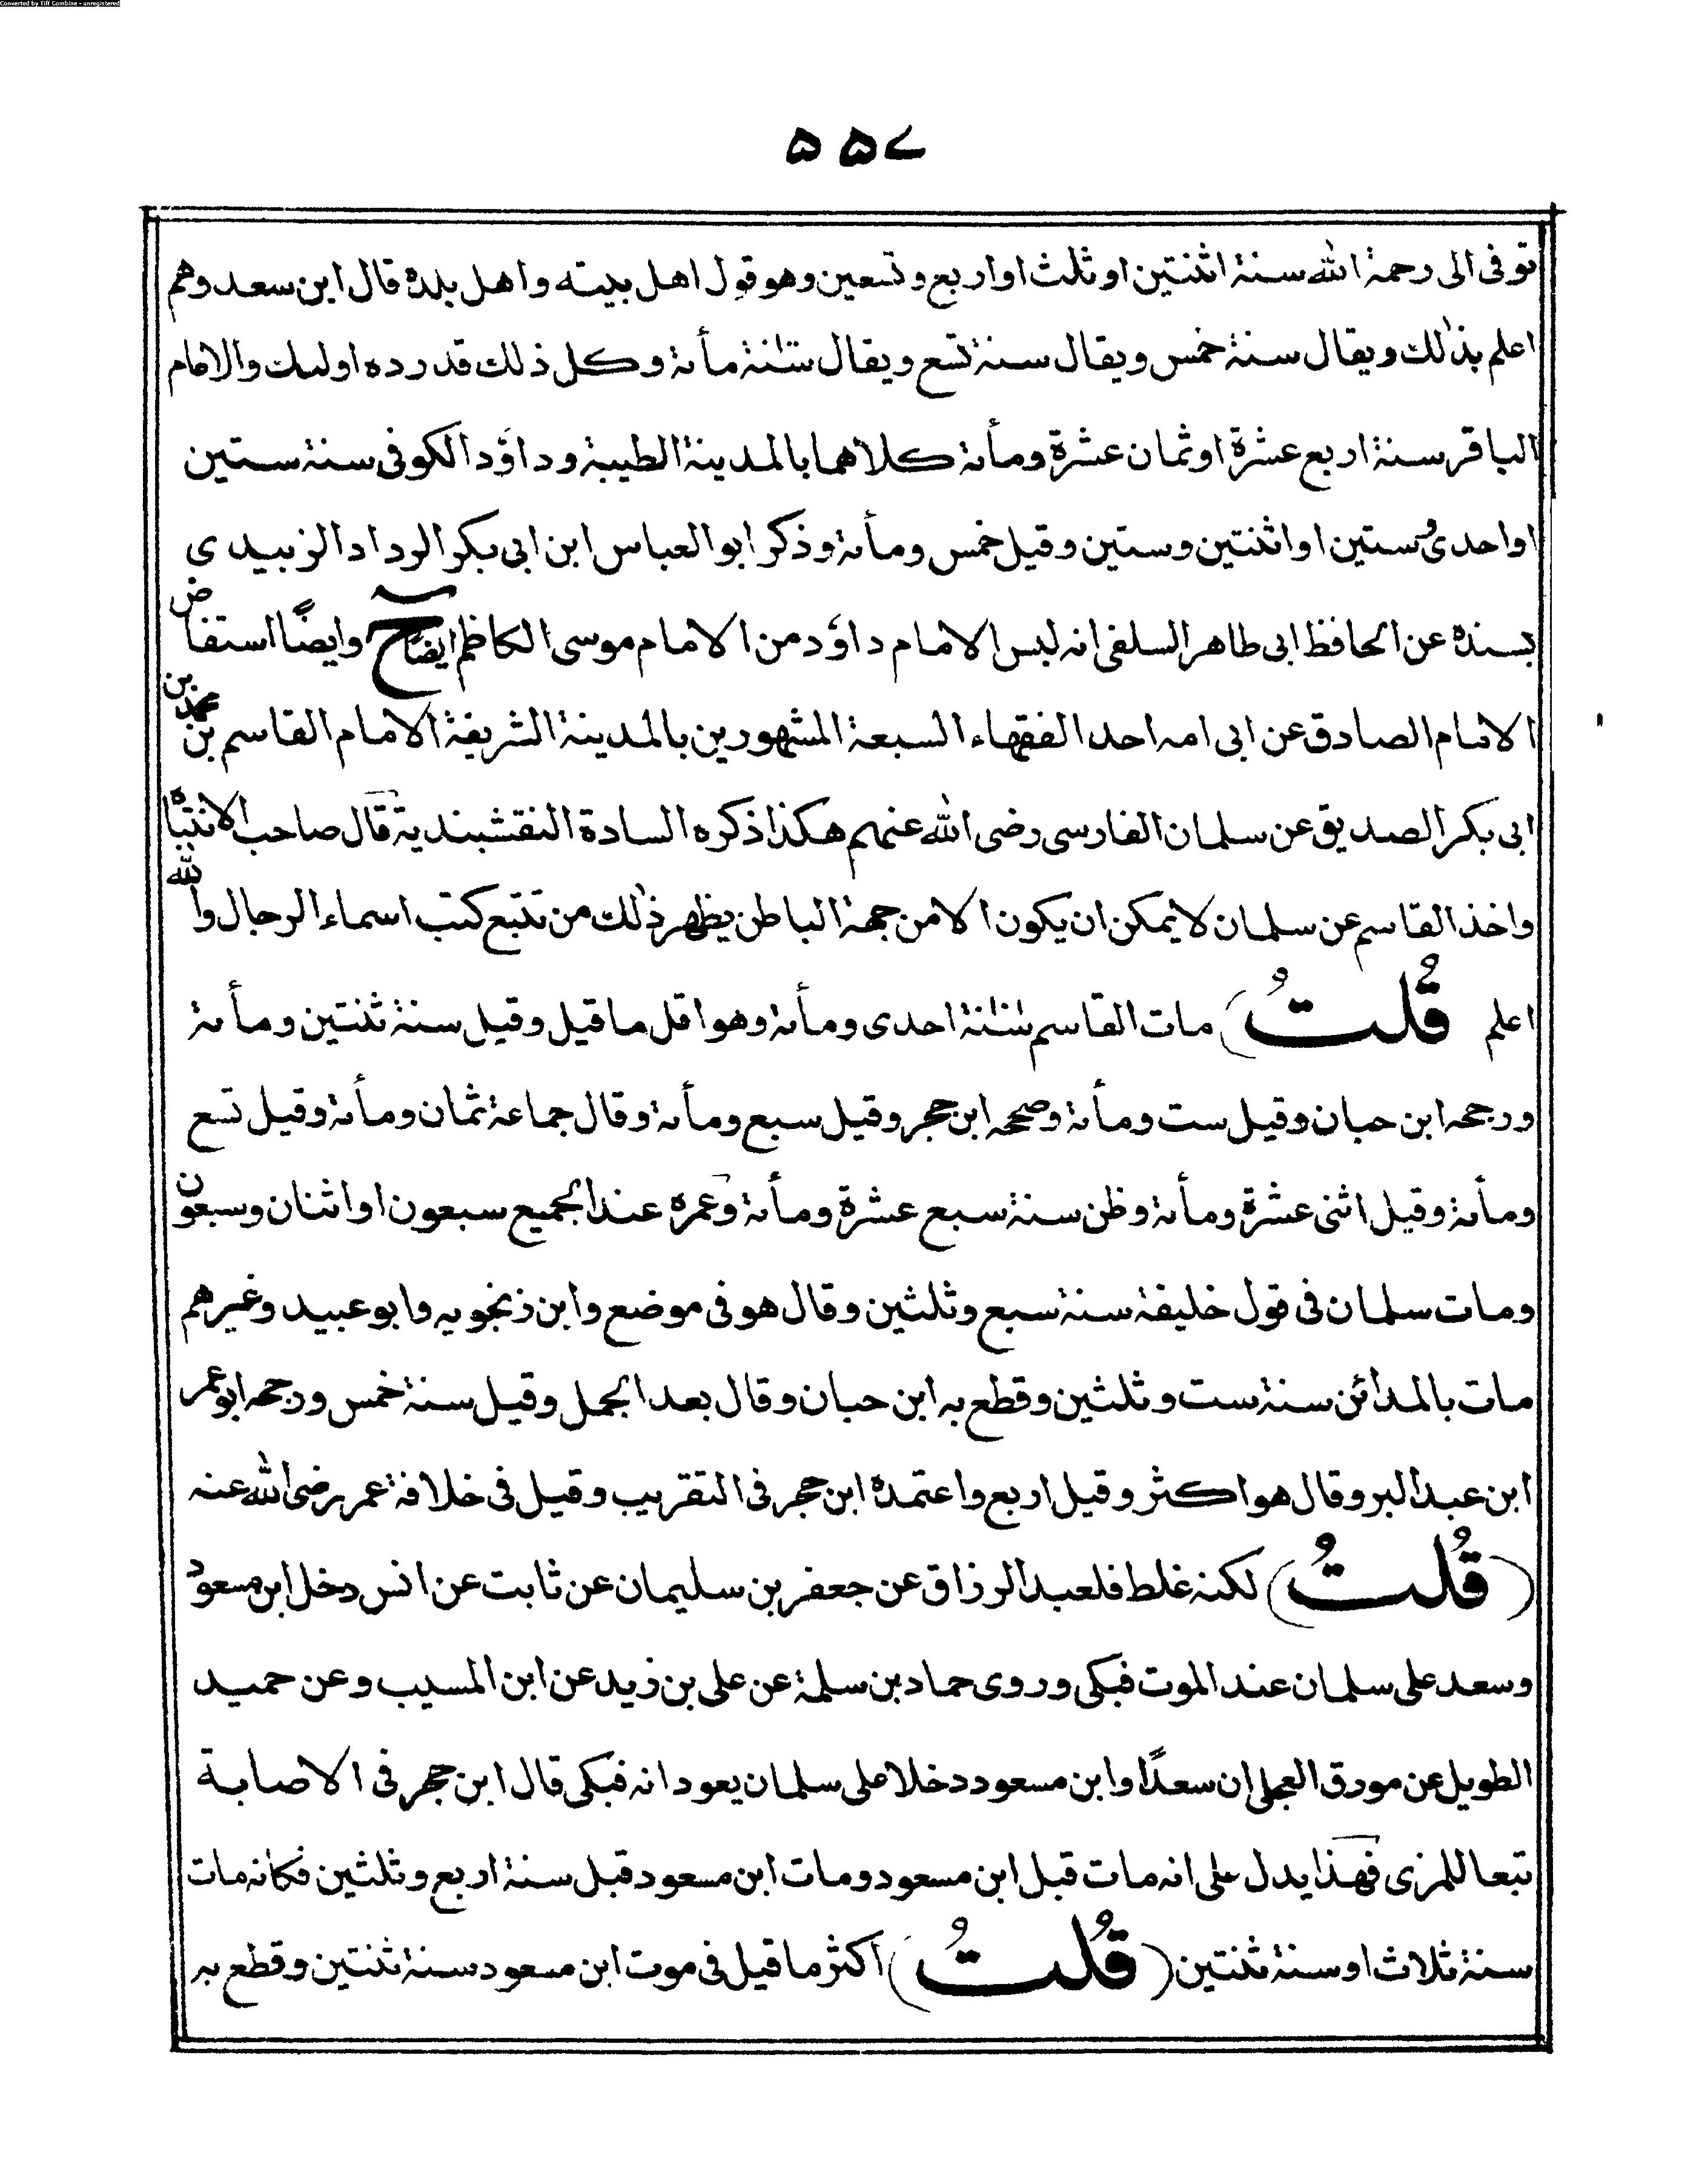 Converted by Tiff Combine - unregistered
۵۵۷
توفی الی رحمة الله سنة اثنتین او ثلث او اربع و تسعین وهو قول اهل بیته واهل بلده قال ابن سعد وهم
اعلم بذٰلك ویقال سنة خمس ویقال سنة تسع ویقال سنة مأئة وكل ذلك قد رده اولئك والامام
الباقر سنة اربع عشرة او ثمان عشرة ومأئة كلاهما بالمدینة الطیبة وداؤد الكوفی سنة ستین
او احدی وستین او اثنتین وستین وقیل خمس ومأئة وذكر ابو العباس ابن ابی بكر الرداد الزبیدی
بسنده عن الحافظ ابی طاهر السلفی انه لبس الامام داؤد من الامام موسی الكاظم ایضًا ح وایضًا استفاض
الامام الصادق عن ابی امه احد الفقهاء السبعة المشهورین بالمدینة الشریفة الامام القاسم بن محمد بن
ابی بكر الصدیق عن سلمان الفارسی رضی الله عنهم هكذا ذكره السادة النقشبندیة قال صاحب الانتباه
واخذ القاسم عن سلمان لا یمكن ان یكون الا من جهة الباطن یظهر ذٰلك من تتبع كتب اسماء الرجال والله
اعلم قُلتُ) مات القاسم سنة احدی ومأئة وهو اقل ما قیل وقیل سنة ثنتین ومأئة
ورجحه ابن حبان وقیل ست ومأئة وصححه ابن حجر وقیل سبع ومأئة وقال جماعة ثمان ومأئة وقیل تسع
ومأئة وقیل اثنی عشرة ومأئة وظن سنة سبع عشرة ومأئة وعمره عند الجمیع سبعون او اثنان وسبعون
ومات سلمان فی قول خلیفة سنة سبع وثلثین وقال هو فی موضع وابن زنجویه وابو عبید وغیرهم
مات بالمدائن سنة ست وثلثین وقطع به ابن حبان وقال بعد الجمل وقیل سنة خمس ورجحه ابو عمر
ابن عبد البر وقال هو اكثر وقیل اربع واعتمده ابن حجر فی التقریب وقیل فی خلافة عمر رضی الله عنه
(قُلتُ) لكنه غلط فلعبد الرزاق عن جعفر بن سلیمان عن ثابت عن انس دخل ابن مسعود
وسعد علی سلمان عند الموت فبكی وروی حماد بن سلمة عن علی بن زید عن ابن المسیب وعن حمید
الطویل عن مورق العجلی ان سعدًا وابن مسعود دخلا علی سلمان یعودانه فبكی قال ابن حجر فی الاصابة
تبعا للمزی فهذا یدل علی انه مات قبل ابن مسعود ومات ابن مسعود قبل سنة اربع وثلثین فكانه مات
سنة ثلاث او سنة ثنتین (قُلتُ) اكثر ما قیل فی موت ابن مسعود سنة ثنتین وقطع به